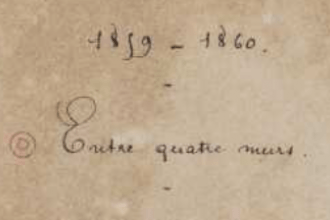 1859 - 1860.
-
Entre quatre murs.
-